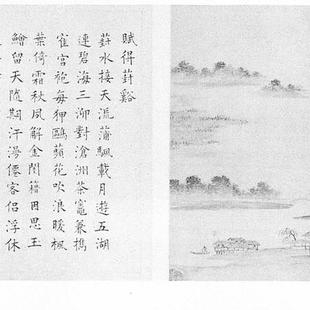 賦得葑谿
葑水接天流蒲颿載月遊五湖
連碧海三泖對滄洲茶竈兼樵
隺宮袍每狎鷗蘋花吹浪暖楓
葉倚霜秋夙解金閨籍因思玉
鱠留天隨期汗漫僊家侶浮休